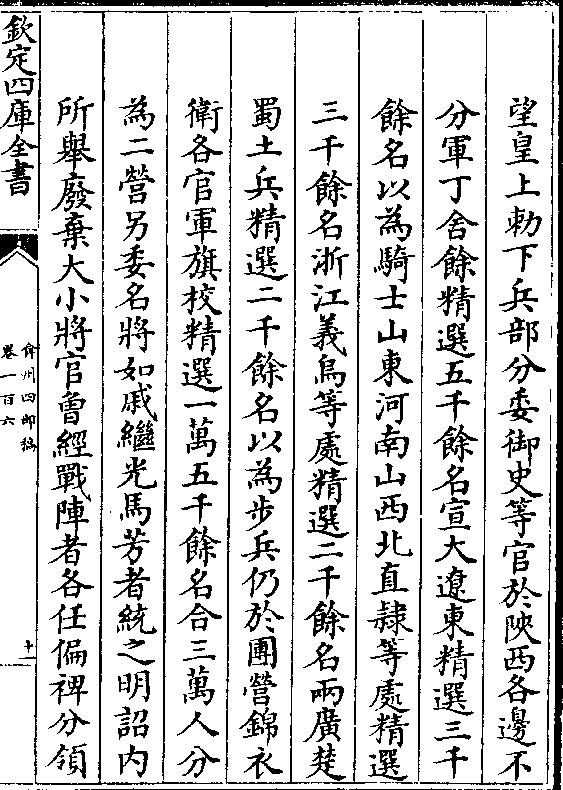 望皇上勅下兵部分委御史等官於陜西各邊不
分軍丁舍餘精選五千餘名宣大遼東精選三千
餘名以為騎士山東河南山西北直隸等處精選
三千餘名浙江義烏等處精選二千餘名兩廣楚
蜀土兵精選二千餘名以為步兵仍於團營錦衣
衛各官軍旗校精選一萬五千餘名合三萬人分
為二營另委名將如戚繼光馬芳者統之明詔内
所舉廢棄大小將官曾經戰陣者各任偏裨分領
欽定四庫全書
弇州四部稿
卷一百六
十一